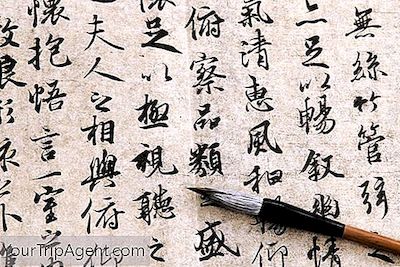 無絲竹管弦之
亦足以暢叙幽情
氣清惠風和暢仰
俯察品類之盛
懷足以極視聽之
夫人之相與俯仰
懷抱悟言一室之
放浪形骸之外
YourTripAgent.com